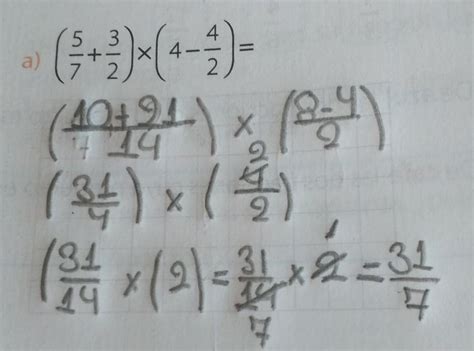 a) (5/7 + 3/2) × (4 − 4/2) =
(10+21/14) × (8-4/2)
(31/4) × (4/2) 2
(31/14 × (2) = 31/14 7 × 2 1 = 31/7